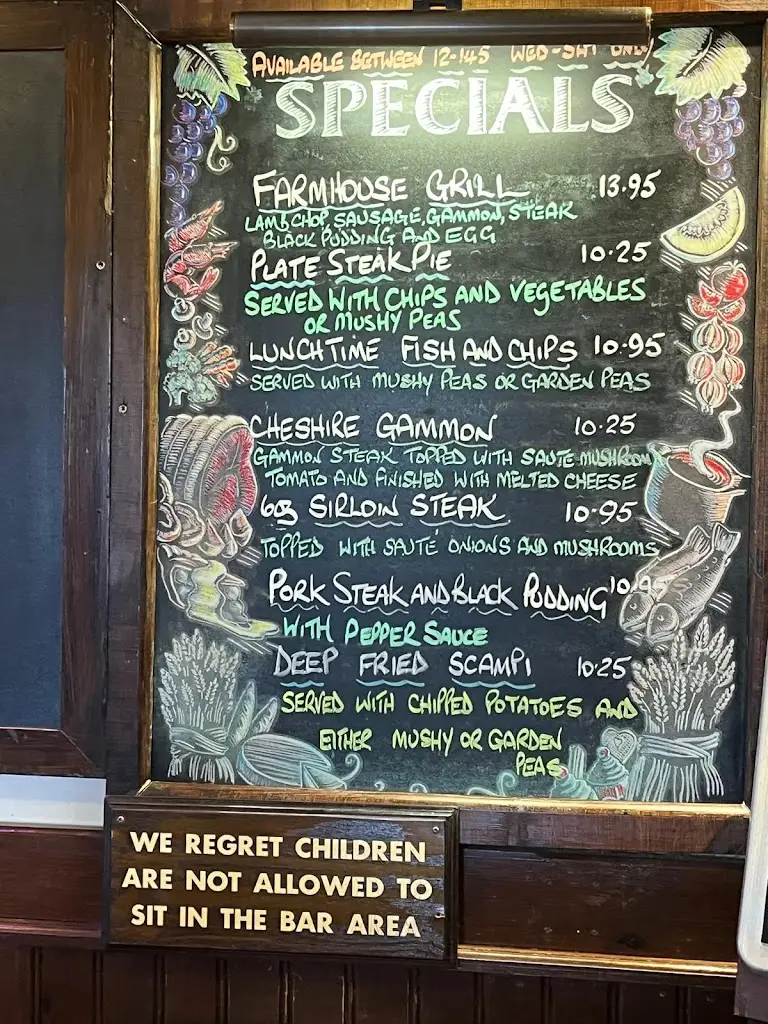 AVAILABLE BETWEEN 12-145 WED-SAT ONLY
SPECIALS
FARMHOUSE GRILL 13.95
LAMB CHOP SAUSAGE, GAMMON, STEAK
BLACK PUDDING AND EGG
PLATE STEAK PIE 10.25
SERVED WITH CHIPS AND VEGETABLES
OR MUSHY PEAS
LUNCHTIME FISH AND CHIPS 10.95
SERVED WITH MUSHY PEAS OR GARDEN PEAS
CHESHIRE GAMMON 10.25
GAMMON STEAK TOPPED WITH SAUTE MUSHROOM
TOMATO AND FINISHED WITH MELTED CHEESE
6oz SIRLOIN STEAK 10.95
TOPPED WITH SAUTÉ ONIONS AND MUSHROOMS
PORK STEAK AND BLACK PUDDING 10.95
WITH PEPPER SAUCE
DEEP FRIED SCAMPI 10.25
SERVED WITH CHIPPED POTATOES AND
EITHER MUSHY OR GARDEN
PEAS
WE REGRET CHILDREN
ARE NOT ALLOWED TO
SIT IN THE BAR AREA